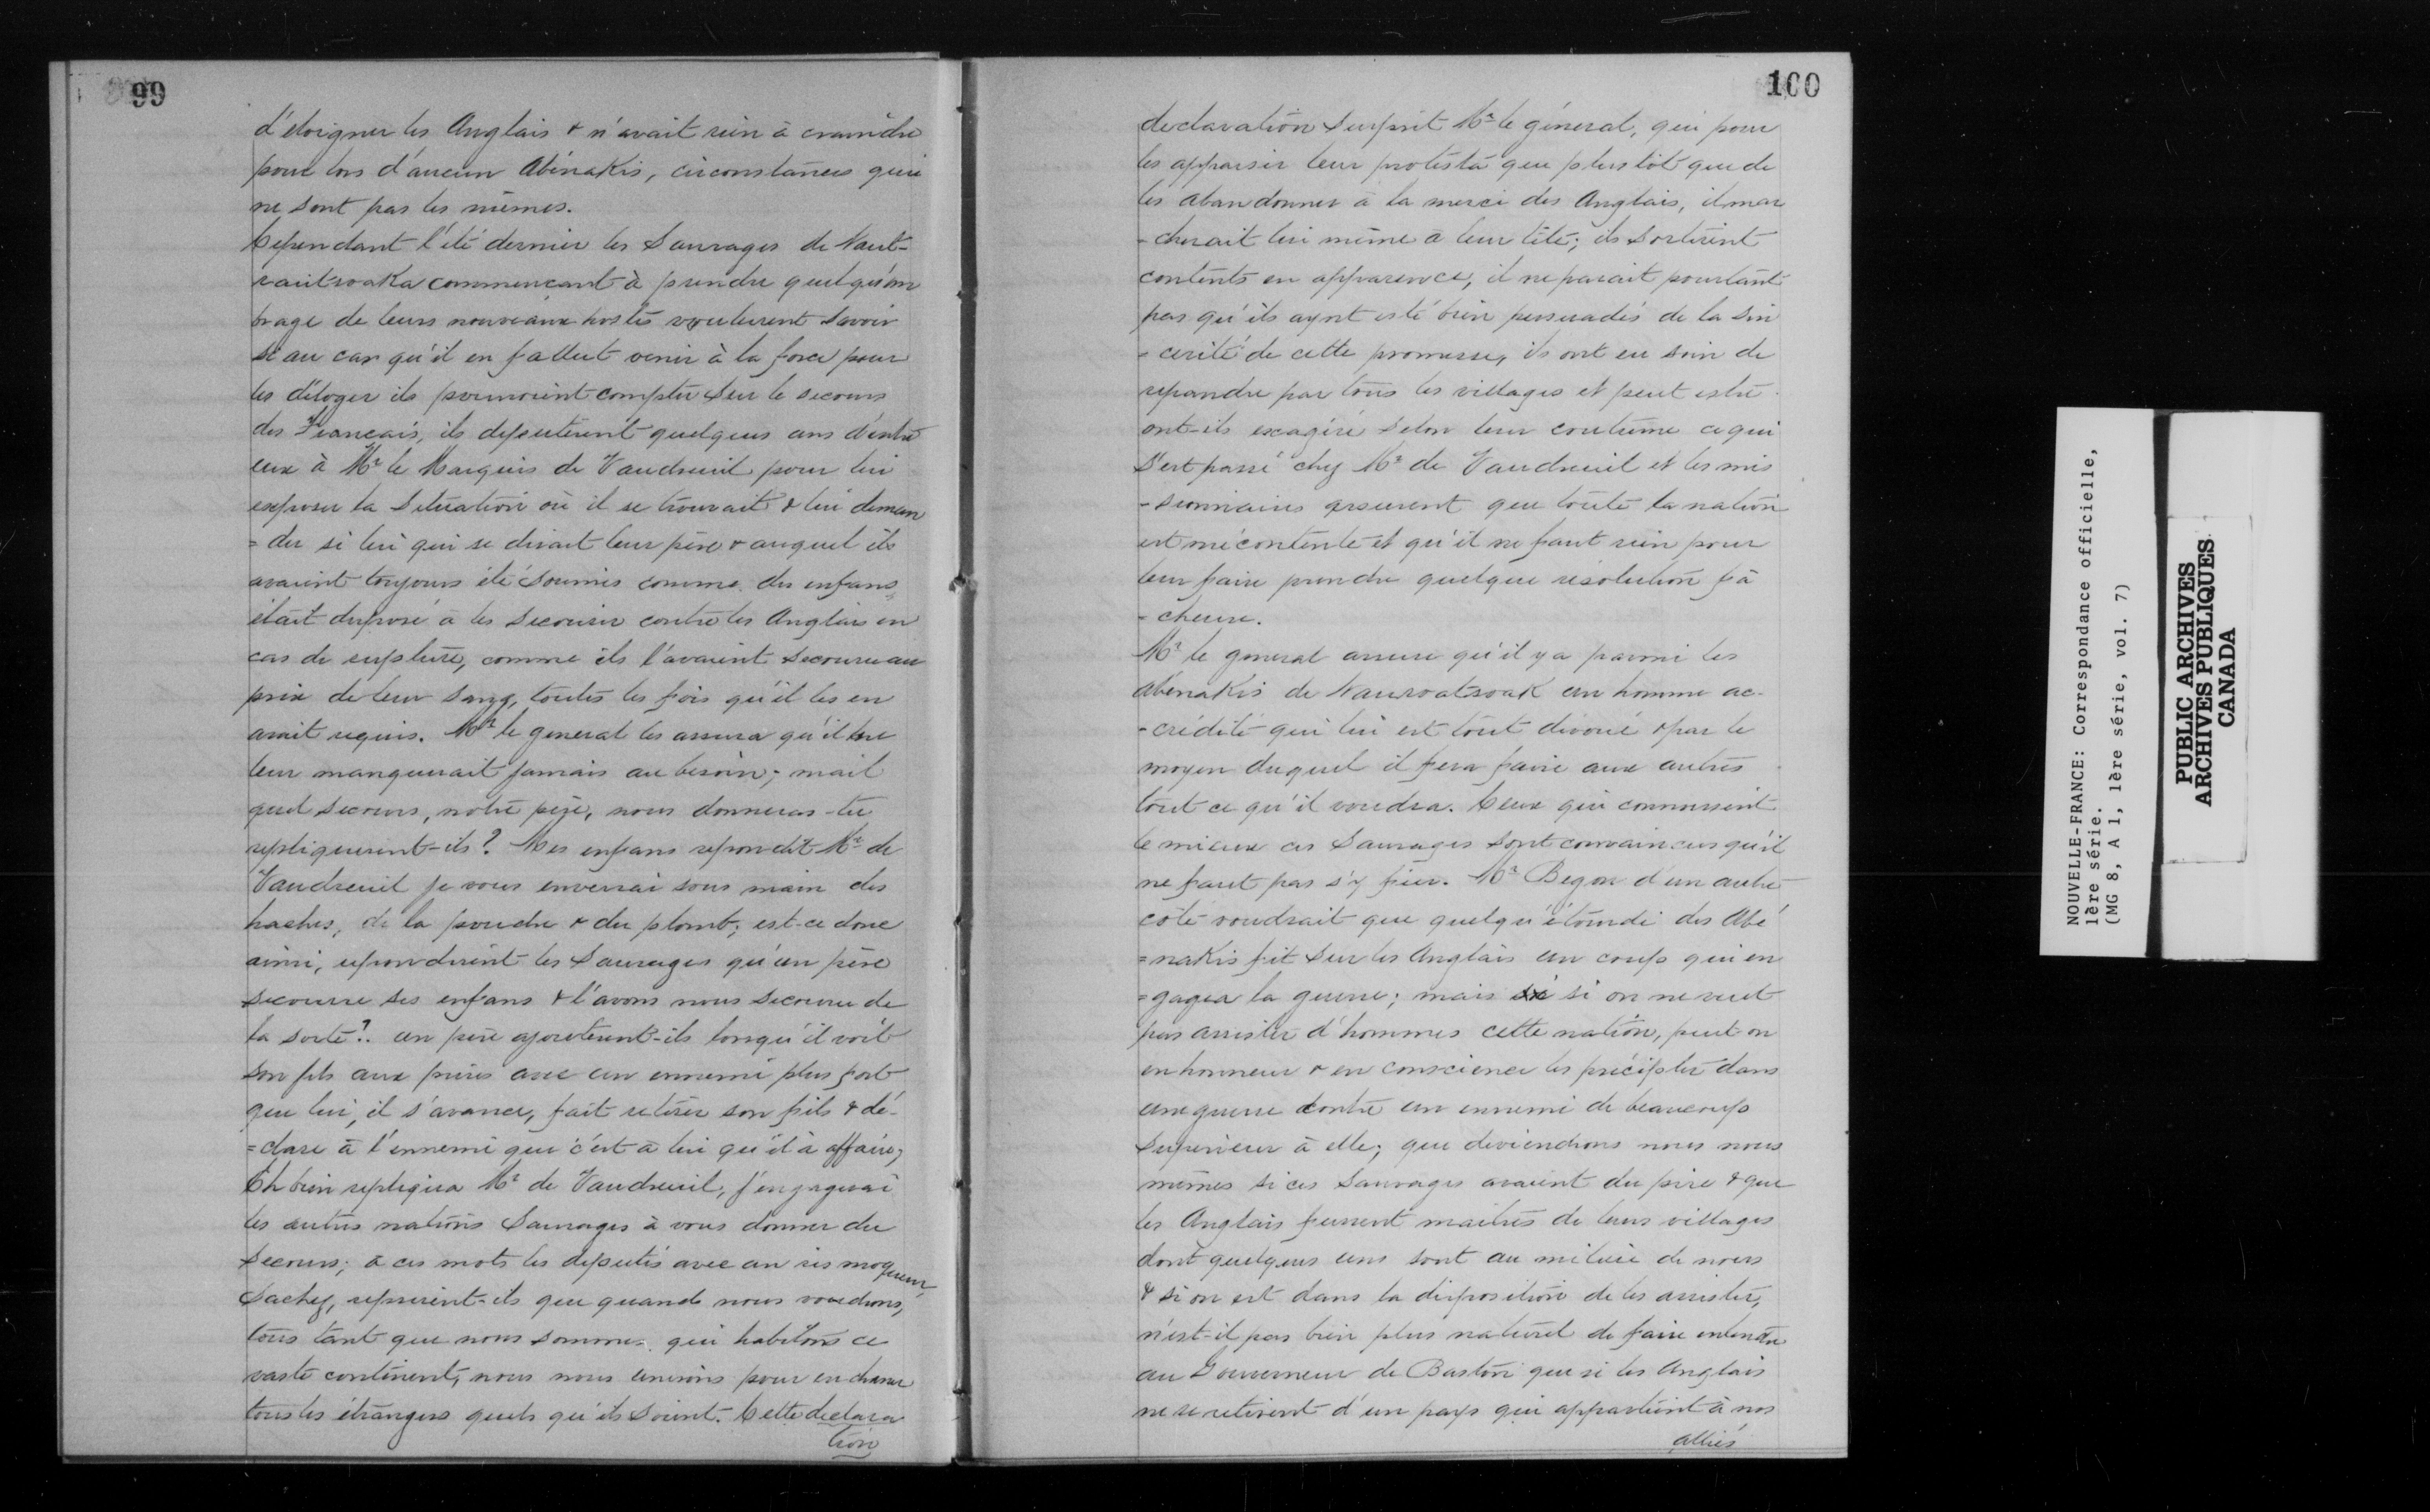 99
d'eloigner les Anglais & n'avait rien à craindre
pour lors d'aucun Abénakis, circonstances qui
ne sont pas les mêmes.
Cependant l'été dernier les Sauvages de Naut-
rautsoaka commençant à prendre quelqu'om
brage de leurs nouveaux hostes voulurent savoir
si au cas qu'il en fallut venir à la force pour
les déloger ils pourroient compter sur le secours
des Francais, ils deputèrent quelques uns d'entre
eux à Mr le Marquis de Vaudreuil pour lui
exposer la situation où il se trouvait & lui deman
= der si lui qui se disait leur père & auquel ils
avaient toujours été soumis comme des enfans,
était disposé à les secourir contre les Anglais en
cas de rupture, comme ils l'avaient secouru au
prix de leur sang, toutes les fois qu'il les en
avait requis. Mr le general les assura qu'il ne
leur manquerait jamais au besoin; mail
quel secours, notre père, nous donneras-tu
repliquerent-ils? Mes enfans repondit Mr de
Vaudreuil je vous enverrai sous main des
haches, de la poudre & du plomb; est-ce donc
ainsi, repondirent les Sauvages qu'un père
secourre ses enfans & l'avons nous secouru de
la sorte?. un père ajouterent-ils lorsqu'il voit
son fils aux prises avec un ennemi plus fort
que lui, il s'avance, fait retirer son fils & dé-
= clare à l'ennemi que c'est à lui qu'il à affaire;
Eh bien repliqua Mr de Vaudreuil, j'engagerai
les autres nations Sauvages à vous donner du
secours; à ces mots les deputés avec un ris moqueur
Sachez, reprirent-ils que quand nous voudrons,
tous tant que nous sommes qui habitons ce
vaste continent, nous nous unirons pour en chasser
tous les étrangers quels qu'ils soient. Cette declara
tion
100
declaration surprit Mr le général, qui pour
les appaiser leur protesta que plus tôt que de
les abandonner à la merci des Anglais, il mar
- cherait lui même à leur tête; ils sortirent
contents en apparence, il ne parait pourtant
pas qu'ils aynt esté bien persuadés de la sin
= cerité de cette promesse, ils ont eu soin de
repandre par tous les villages et peut estre
ont-ils exagéré selon leur coutume ce qui
s'est passé chez Mr de Vaudreuil et les mis
- sionnaires assurent que toute la nation
est mécontente et qu'il ne faut rien pour
leur faire prendre quelque résolution fâ
- cheuse.
Mr le general assure qu'il y a parmi les
abénakis de Naurvatsoak un homme ac-
- crédité qui lui est tout dévoué & par le
moyen duquel il fera faire aux autres
tout ce qu'il voudra. Ceux qui connoissent
le mieux ces Sauvages sont convaincus qu'il
ne faut pas s'y fier. Mr Begon d'un autre
coté voudrait que quelqu'étourdi des Abé
= nakis fit sur les Anglais un coup qui en
= gagea la guerre; mais si si on ne veut
pas assister d'hommes cette nation, peut-on
en honneur & en conscience les précipiter dans
une guerre contre un ennemi de beaucoup
superieur à elle; que deviendrons nous nous
mêmes si ces Sauvages avaient du pire & que
les Anglais fussent maitres de leurs villages
dont quelques uns sont au milieu de nous
& si on est dans la disposition de les assister,
n'est-il pas bien plus naturel de faire entendre
au Gouverneur de Baston que si les Anglais
ne se retirent d'un pays qui appartient à nos
alliés
NOUVELLE-FRANCE: Correspondance officielle,
1ère série.
(MG 8, A 1, 1ère série, vol. 7)
PUBLIC ARCHIVES
ARCHIVES PUBLIQUES
CANADA